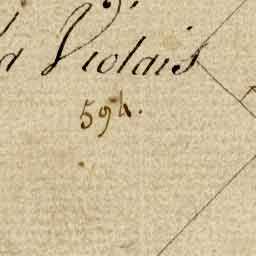 la Violais
594.